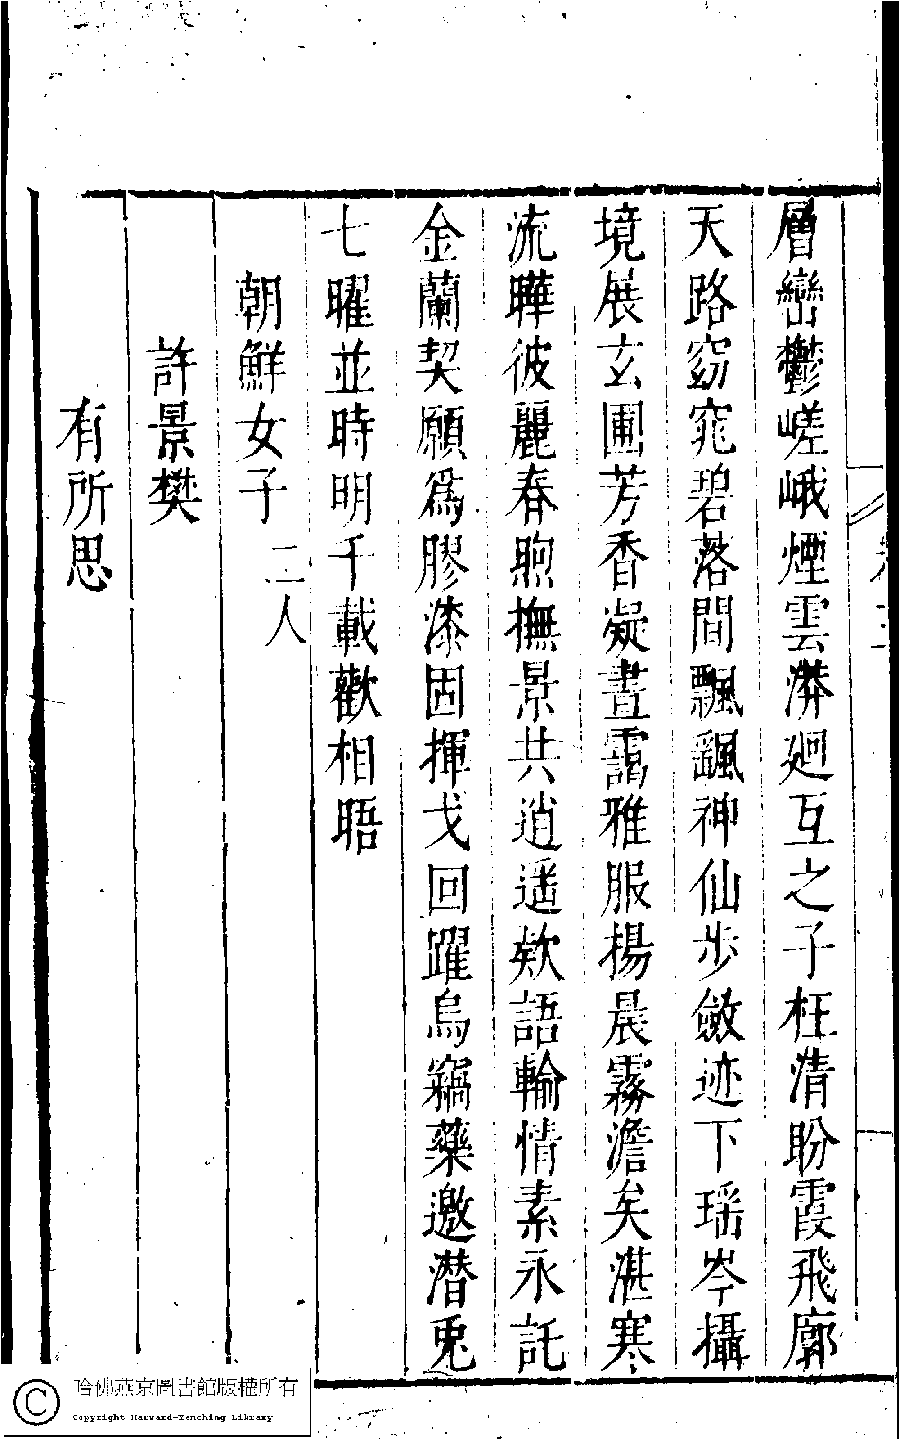 層巒鬱嵯峨煙雲漭廻互之子枉清盼霞飛廓
天路窈窕碧落間飄颻神仙步斂迹下瑶岑攝
境展玄圃芳香凝晝靄雅服揚晨霧澹矣湛寒
流曄彼麗春煦撫景共逍遥欸語輸情素永託
金蘭契願爲膠漆固揮戈回躍烏竊藥邀潜兎
七曜並時明千載歡相晤
朝鮮女子二人
許景樊
有所思
哈佛燕京圖書館版權所有
Copyright Harvard-Yenching Library